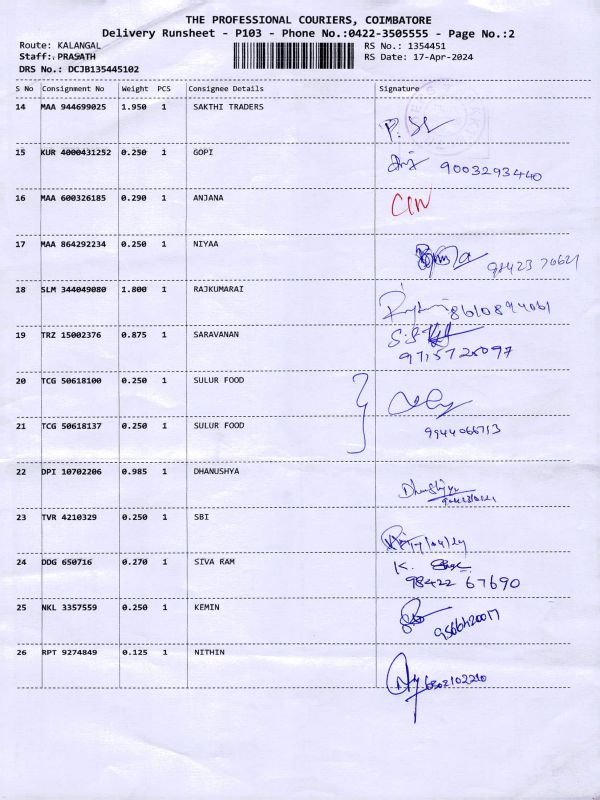 THE PROFESSIONAL COURIERS, COIMBATORE
Delivery Runsheet - P103 - Phone No.:0422-3505555 - Page No.:2
Route: KALANGAL RS No.: 1354451
Staff: PRASATH RS Date: 17-Apr-2024
DRS No.: DCJB135445102
S No Consignment No Weight PCS Consignee Details Signature
14 MAA 944699025 1.950 1 SAKTHI TRADERS
15 KUR 4000431252 0.250 1 GOPI 9003293440
16 MAA 600326185 0.290 1 ANJANA
17 MAA 864292234 0.250 1 NIYAA
18 SLM 344049080 1.800 1 RAJKUMARAI
19 TRZ 15002376 0.875 1 SARAVANAN
20 TCG 50618100 0.250 1 SULUR FOOD
21 TCG 50618137 0.250 1 SULUR FOOD
22 DPI 10702206 0.985 1 DHANUSHYA
23 TVR 4210329 0.250 1 SBI
24 DDG 650716 0.270 1 SIVA RAM K.
98422 67690
25 NKL 3357559 0.250 1 KEMIN
26 RPT 9274849 0.125 1 NITHIN